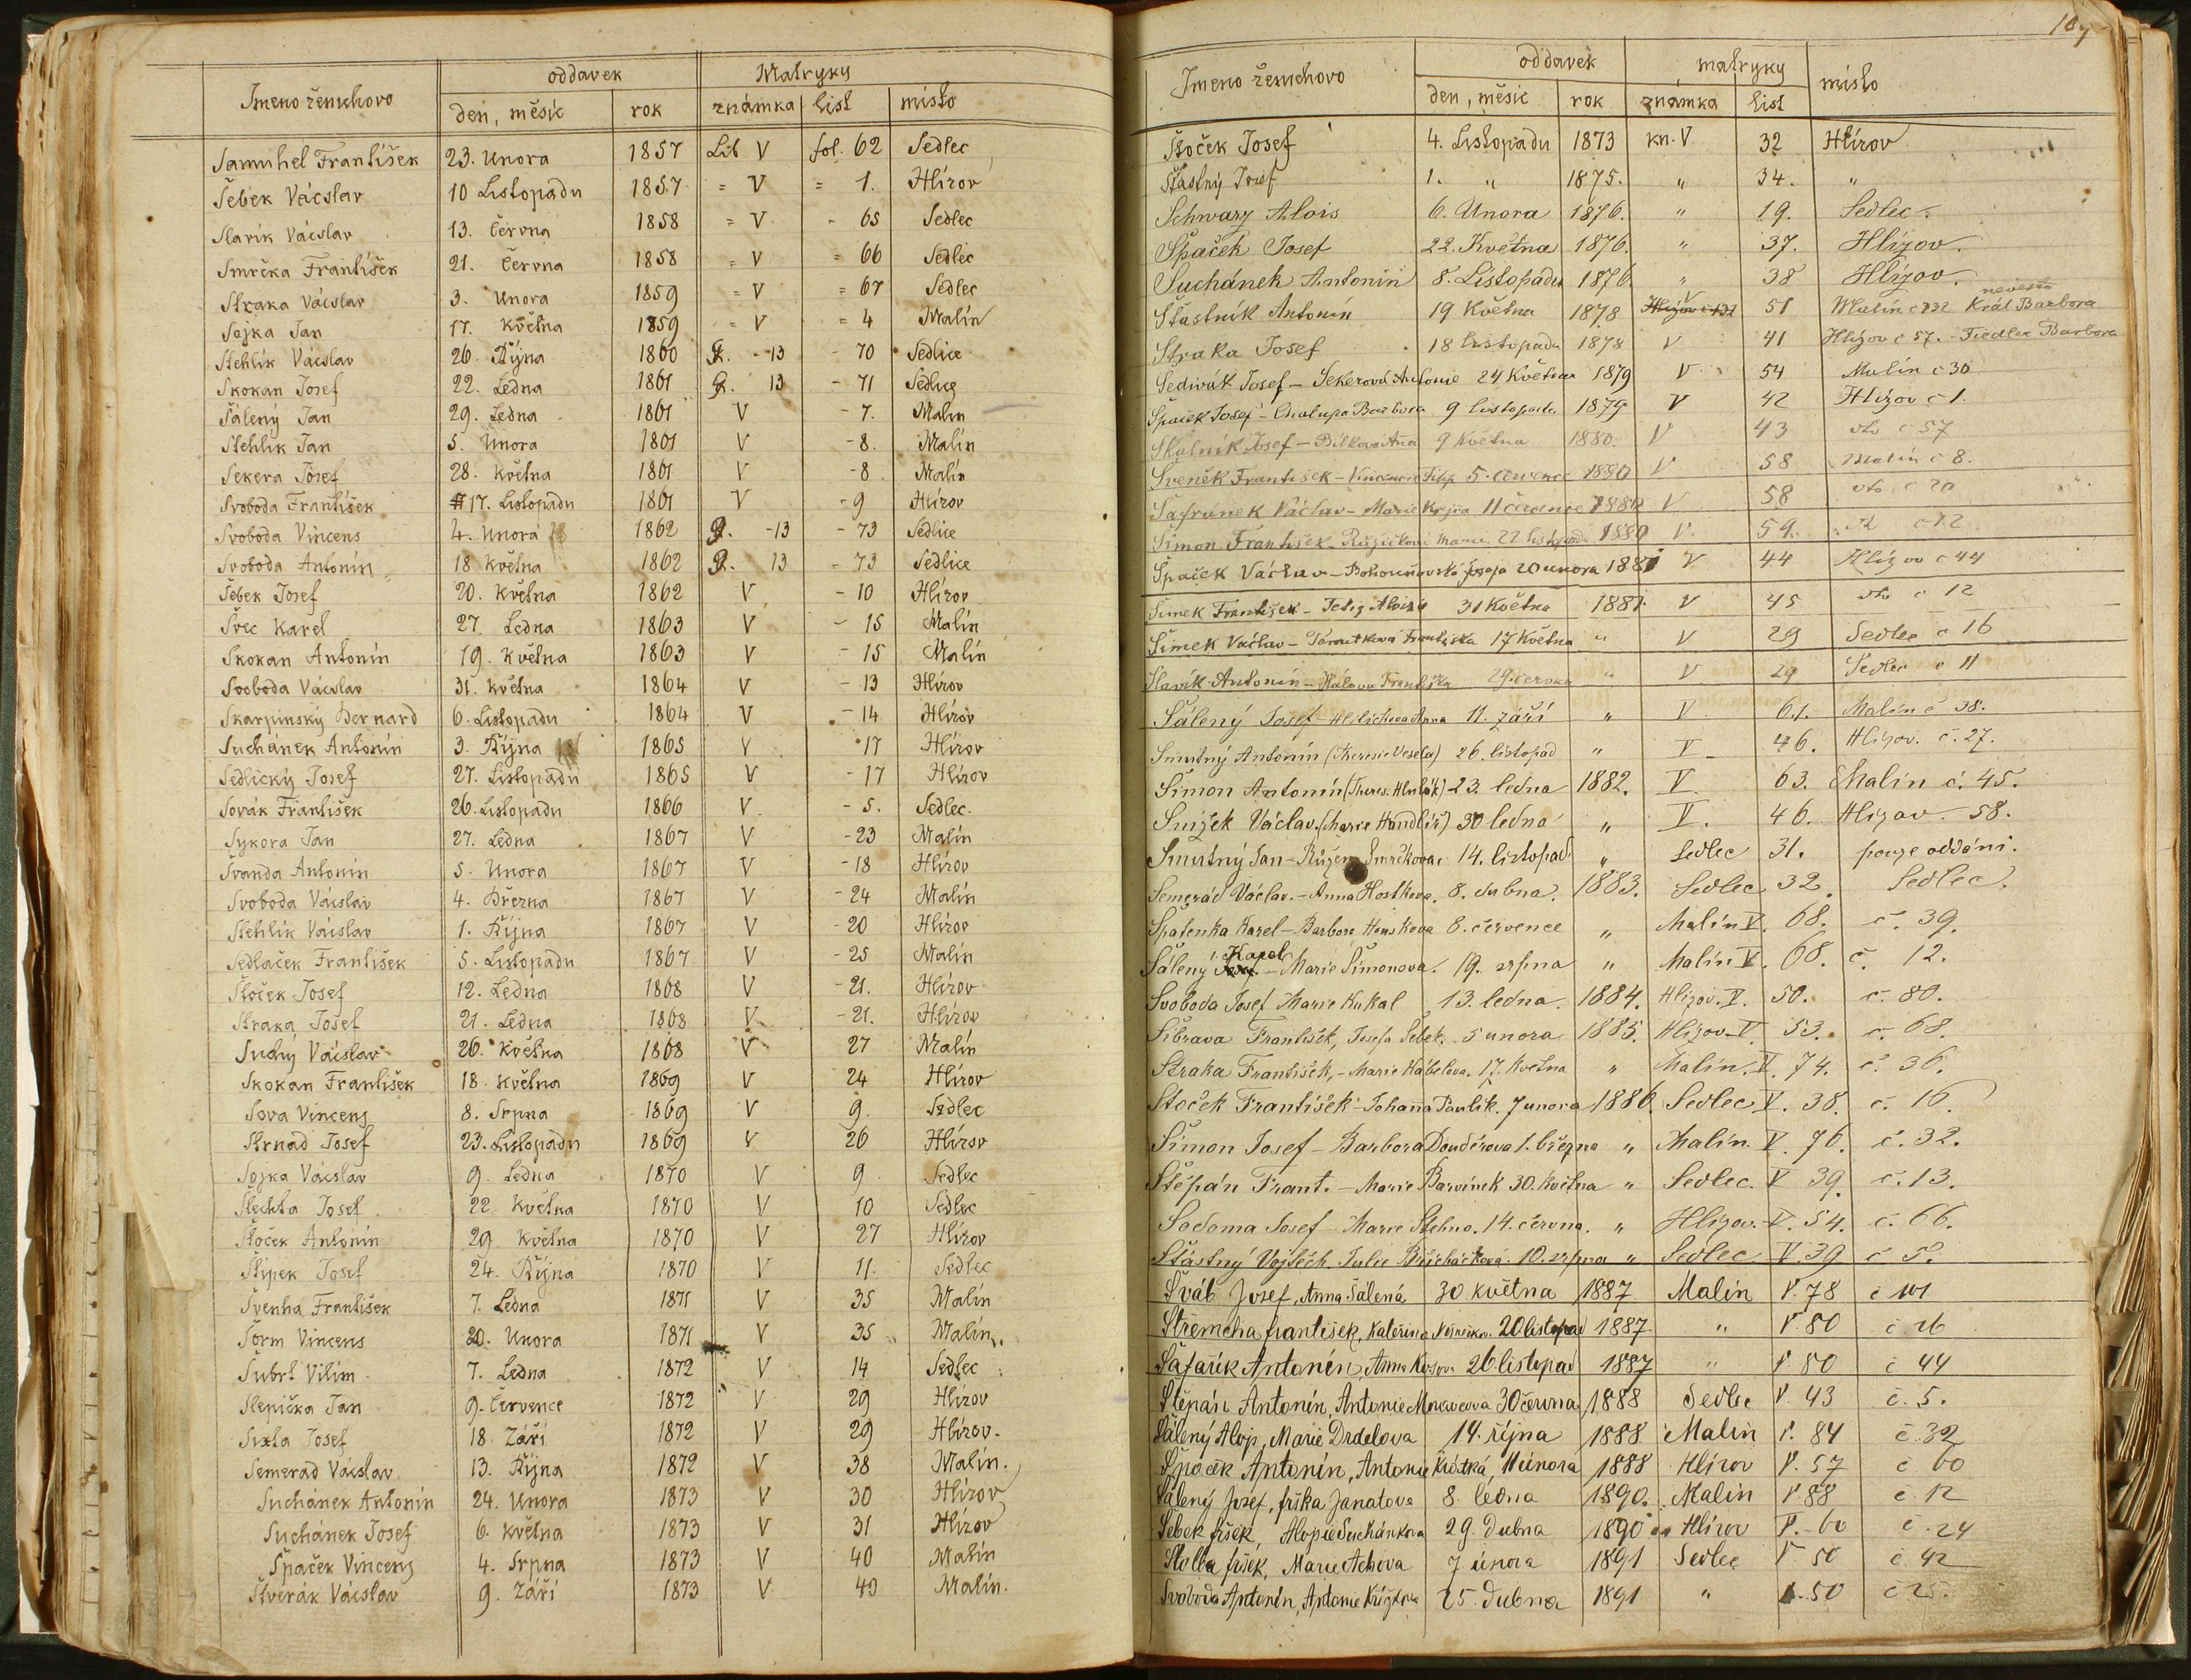 oddavek Matryky
Jmeno ženichovo den, měsíc rok známka list místo
Samuhel František 23. Unora 1857 Lib V fol. 62 Sedlec
Šebek Vácslav 10 Listopadu 1857 = V = 1. Hlírov
Slavík Vácslav 13. Června 1858 = V - 65 Sedlec
Smrčka František 21. Června 1858 = V = 66 Sedlec
Straka Vácslav 3. Unora 1859 = V = 67 Sedlec
Sojka Jan 17. Května 1859 = V = 4 Malín
Stehlík Vácslav 26. Října 1860 - 13 - 70 Sedlice
Skokan Josef 22. Ledna 1861 13 - 71 Sedlice
Šálený Jan 29. Ledna 1861 V - 7. Malín
Stehlík Jan 5. Unora 1861 V - 8. Malín
Sekera Josef 28. Května 1861 V - 8 Malín
Svoboda František 17. Listopadu 1861 V - 9 Hlírov
Svoboda Vincens 4. Unora 1862 - 13 - 73 Sedlice
Svoboda Antonín 18 Května 1862 13 - 73 Sedlice
Šebek Josef 20. Května 1862 V - 10 Hlírov
Švec Karel 27. Ledna 1863 V - 15 Malín
Skokan Antonín 19. Května 1863 V - 15 Malín
Svoboda Vácslav 31. Května 1864 V - 13 Hlírov
Skarpinský Bernard 6. Listopadu 1864 V - 14 Hlírov
Suchánek Antonín 3. Října 1865 V 17 Hlírov
Sedlický Josef 27. Listopadu 1865 V - 17 Hlírov
Sovák František 26. Listopadu 1866 V - 5. Sedlec.
Sykora Jan 27. Ledna 1867 V - 23 Malín
Švanda Antonín 5. Unora 1867 V - 18 Hlírov
Svoboda Vácslav 4. Března 1867 V - 24 Malín
Stehlík Vácslav 1. Října 1867 V - 20 Hlírov
Sedlaček František 5. Listopadu 1867 V - 25 Malín
Štoček Josef 12. Ledna 1868 V - 21. Hlírov
Straka Josef 21. Ledna 1868 V - 21. Hlírov
Suchý Vácslav 26. Května 1868 V 27 Malín
Skokan František 18. Května 1869 V 24 Hlírov
Sova Vincens 8. Srpna 1869 V 9. Sedlec
Strnad Josef 23. Listopadu 1869 V 26 Hlírov
Sojka Vácslav 9. Ledna 1870 V 9 Sedlec
Šlechta Josef 22. Května 1870 V 10 Sedlec
Štoček Antonín 29. Května 1870 V 27 Hlírov
Štipek Josef 24. Října 1870 V 11. Sedlec
Švenha František 7. Ledna 1871 V 35 Malín
Šorm Vincens 20. Unora 1871 V 35 Malín
Šubrt Vilím 7. Ledna 1872 V 14 Sedlec
Slepička Jan 9. Července 1872 V 29 Hlírov
Sixta Josef 18. Září 1872 V 29 Hlírov.
Semerad Vácslav 13. Října 1872 V 38 Malín.
Suchánek Antonín 24. Unora 1873 V 30 Hlírov
Suchánek Josef 6. Května 1873 V 31 Hlírov
Špaček Vincens 4. Srpna 1873 V 40 Malín
Štverák Vácslav 9. Září 1873 V 40 Malín.
oddavek matryky
Jmeno ženichovo den, měsíc rok známka list místo
Štoček Josef 4. Listopadu 1873 kn. V 32 Hlírov
Šťastný Josef 1. " 1875. " 34. "
Schwarz Alois 6. Unora 1876. " 19. Sedlec.
Špaček Josef 22. Května 1876. " 37. Hlízov.
Suchánek Antonín 8. Listopadu 1876 " 38 Hlízov.
nevěsta
Šťastník Antonín 19 Května 1878 V 51 Malín č 132 Král Barbora
Straka Josef 18 listopadu 1878 V 41 Hlízov č 57. - Fiedler Barbora
Šedivák Josef - Sekerová Antonie 24 Května 1879 V 54 Malín č 30
Špaček Josef - Chalupa Barbora 9 listopadu 1879 V 42 Hlízov č 1.
Skalník Josef - Bílková Anna 9 Května 1880. V 43 dto č 57
František - 5. července 1880 V 58 Malín č 8.
Šafránek Václav - Marie Krejča 11 července 1880 V 58 dto č 20
Šimon František - Růžičková Marie. 22 listopad. 1880 V. 59. č 12
Špaček Václav - 20 unora 1881 V 44 Hlízov č 44
Šimek František - Aloisie 31 Května 1881. V 45 dto č 12
Šimek Václav - Františka 17 Května " V 29 Sedlec č 16
Slavík Antonín - Hálova Františka 29. června " V 29 Sedlec č 11
Šálený Josef - Anna 11. září " V 61. Malín č 38.
Smutný Antonín (Theresie Vesela) 26. listopad " V 46. Hlízov. č. 27.
Šimon Antonín (Theres. Hlušák) 23. ledna 1882. V. 63. Malín č. 45.
Smížek Václav. (Marie Handlíř) 30 ledna " V. 46. Hlízov. 58.
Smutný Jan - Růžena Smrčkova 14. listopad. " Sedlec 31. pouze oddáni.
Semerád Václav. - Anna Hostkova. 8. dubna. 1883. Sedlec 32. Sedlec.
Špatenka Karel - Barbora Houskova 8. července " Malín V. 68. č. 39.
Karel
Šálený - Marie Šimonova. 19. srpna " Malín V. 68. č. 12.
Svoboda Josef Marie Kukal 13. ledna. 1884. Hlízov. V. 50. č. 80.
Šibrava František, Josefa Šebek. 5 unora 1885. Hlizov. V. 53. č. 68.
Straka František, - Marie Hábelova. 17. Května " Malín. V. 74. č. 36.
Stoček František - Johanna Pavlík. 7 unora 1886 Sedlec V. 38. č. 16.
Šimon Josef - Barbora Douděrova 1. března " Malín. V. 76. č. 32.
Štěpán Frant. - Marie Barvínek 30. Května " Sedlec. V 39. č. 13.
Sodoma Josef - Marie Stehno. 14. června. " Hlízov. V. 54. č. 66.
Šťastný Vojtěch. Julie Břicháčková. 10. srpna " Sedlec V. 39 č 5.
Šváb Josef, Anna Šálená 30 května 1887 Malín V. 78 č 101
Střemcha František, Kateřina 20 listopad 1887 " V. 80 č 26
Šafařík Antonín, Anna Kosova 26. listopad 1887 " V 80 č 44
Štěpán Antonín, Antonie 30 června 1888 Sedlec V. 43 č. 5.
Šálený Aloys, Marie Drdelova 14. října 1888. Malín V. 84 č. 32
Špaček Antonín, Antonie Krátká, 11 února 1888 Hlírov V. 57 č 60
Šálený Josef, frška Janatova 8. ledna 1890. Malín V 88 č. 12
Šebek fršek, Aloysie Suchánkova 29. dubna 1890 Hlírov V. - 60 č. 24
fršek, Marie 7 února 1891 Sedlec V 50 č. 42
Svoboda Antonín, Antonie Křížkova 25. dubna 1891 " V. 50 č 25.